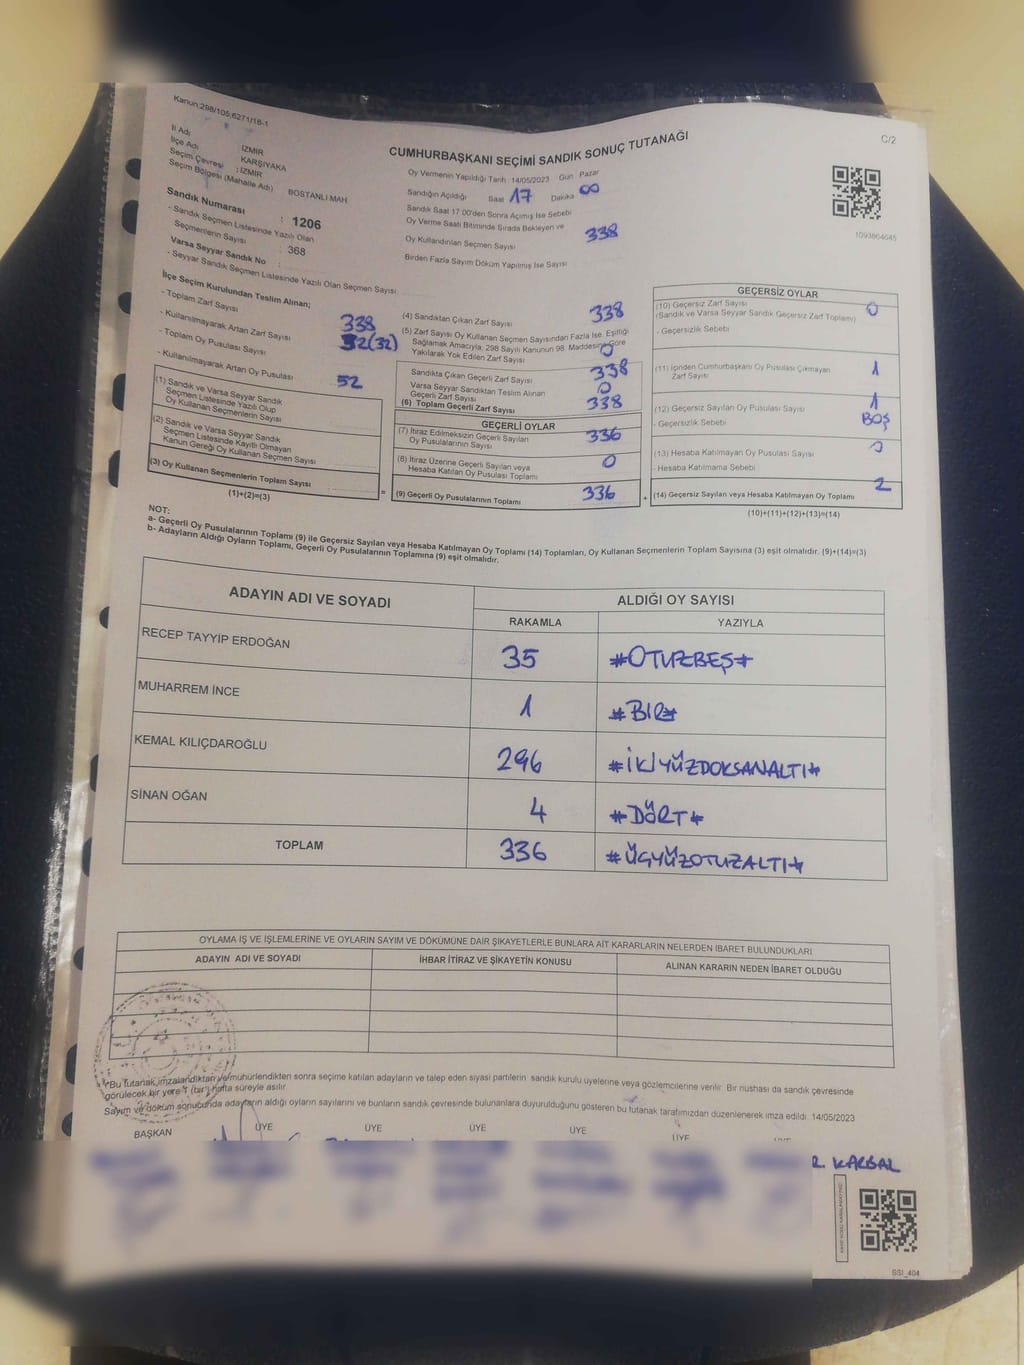 Kanun:298/105,6271/18-1
C/2
CUMHURBAŞKANI SEÇİMİ SANDIK SONUÇ TUTANAĞI
İl Adı : İZMİR
İlçe Adı : KARŞIYAKA
Seçim Çevresi : İZMİR
Seçim Bölgesi (Mahalle Adı) : BOSTANLI MAH.
Sandık Numarası : 1206
- Sandık Seçmen Listesinde Yazılı Olan
Seçmenlerin Sayısı : 368
Varsa Seyyar Sandık No :
- Seyyar Sandık Seçmen Listesinde Yazılı Olan Seçmen Sayısı
Oy Vermenin Yapıldığı Tarih :14/05/2023 Gün : Pazar
Sandığın Açıldığı Saat 17 Dakika 00
Sandık Saat 17.00'den Sonra Açılmış İse Sebebi
Oy Verme Saati Bitiminde Sırada Bekleyen ve
Oy Kullandırılan Seçmen Sayısı 338
Birden Fazla Sayım Döküm Yapılmış İse Sayısı
1093864645
İlçe Seçim Kurulundan Teslim Alınan;
- Toplam Zarf Sayısı 338
- Kullanılmayarak Artan Zarf Sayısı 52(32)
- Toplam Oy Pusulası Sayısı
- Kullanılmayarak Artan Oy Pusulası 52
(1) Sandık ve Varsa Seyyar Sandık
Seçmen Listesinde Yazılı Olup
Oy Kullanan Seçmenlerin Sayısı
(2) Sandık ve Varsa Seyyar Sandık
Seçmen Listesinde Kayıtlı Olmayan
Kanun Gereği Oy Kullanan Seçmen Sayısı
(3) Oy Kullanan Seçmenlerin Toplam Sayısı
(1)+(2)=(3)
(4) Sandıktan Çıkan Zarf Sayısı 338
(5) Zarf Sayısı Oy Kullanan Seçmen Sayısından Fazla İse, Eşitliği
Sağlamak Amacıyla, 298 Sayılı Kanunun 98. Maddesine Göre
Yakılarak Yok Edilen Zarf Sayısı 0
Sandıkta Çıkan Geçerli Zarf Sayısı 338
Varsa Seyyar Sandıktan Teslim Alınan
Geçerli Zarf Sayısı 0
(6) Toplam Geçerli Zarf Sayısı 338
GEÇERLİ OYLAR
(7) İtiraz Edilmeksizin Geçerli Sayılan
Oy Pusulalarının Sayısı 336
(8) İtiraz Üzerine Geçerli Sayılan veya
Hesaba Katılan Oy Pusulası Toplamı 0
= (9) Geçerli Oy Pusulalarının Toplamı 336 +
GEÇERSİZ OYLAR
(10) Geçersiz Zarf Sayısı 0
(Sandık ve Varsa Seyyar Sandık Geçersiz Zarf Toplamı)
- Geçersizlik Sebebi
(11) İçinden Cumhurbaşkanı Oy Pusulası Çıkmayan
Zarf Sayısı 1
(12) Geçersiz Sayılan Oy Pusulası Sayısı 1
- Geçersizlik Sebebi BOŞ
(13) Hesaba Katılmayan Oy Pusulası Sayısı 0
- Hesaba Katılmama Sebebi
(14) Geçersiz Sayılan veya Hesaba Katılmayan Oy Toplamı 2
(10)+(11)+(12)+(13)=(14)
NOT:
a- Geçerli Oy Pusulalarının Toplamı (9) ile Geçersiz Sayılan veya Hesaba Katılmayan Oy Toplamı (14) Toplamları, Oy Kullanan Seçmenlerin Toplam Sayısına (3) eşit olmalıdır. (9)+(14)=(3)
b- Adayların Aldığı Oyların Toplamı, Geçerli Oy Pusulalarının Toplamına (9) eşit olmalıdır.
ADAYIN ADI VE SOYADI ALDIĞI OY SAYISI
RAKAMLA YAZIYLA
RECEP TAYYİP ERDOĞAN 35 #OTUZBEŞ#
MUHARREM İNCE 1 #BİR#
KEMAL KILIÇDAROĞLU 296 #İKİYÜZDOKSANALTI#
SİNAN OĞAN 4 #DÖRT#
TOPLAM 336 #ÜÇYÜZOTUZALTI#
OYLAMA İŞ VE İŞLEMLERİNE VE OYLARIN SAYIM VE DÖKÜMÜNE DAİR ŞİKAYETLERLE BUNLARA AİT KARARLARIN NELERDEN İBARET BULUNDUKLARI
ADAYIN ADI VE SOYADI İHBAR İTİRAZ VE ŞİKAYETİN KONUSU ALINAN KARARIN NEDEN İBARET OLDUĞU
*Bu tutanak,imzalandıktan ve mühürlendikten sonra seçime katılan adayların ve talep eden siyasi partilerin sandık kurulu üyelerine veya gözlemcilerine verilir. Bir nüshası da sandık çevresinde
görülecek bir yere 1 (bir) hafta süreyle asılır.
Sayım ve döküm sonucunda adayların aldığı oyların sayılarını ve bunların sandık çevresinde bulunanlara duyurulduğunu gösteren bu tutanak tarafımızdan düzenlenerek imza edildi. 14/05/2023
BAŞKAN ÜYE ÜYE ÜYE ÜYE ÜYE
SSI_404